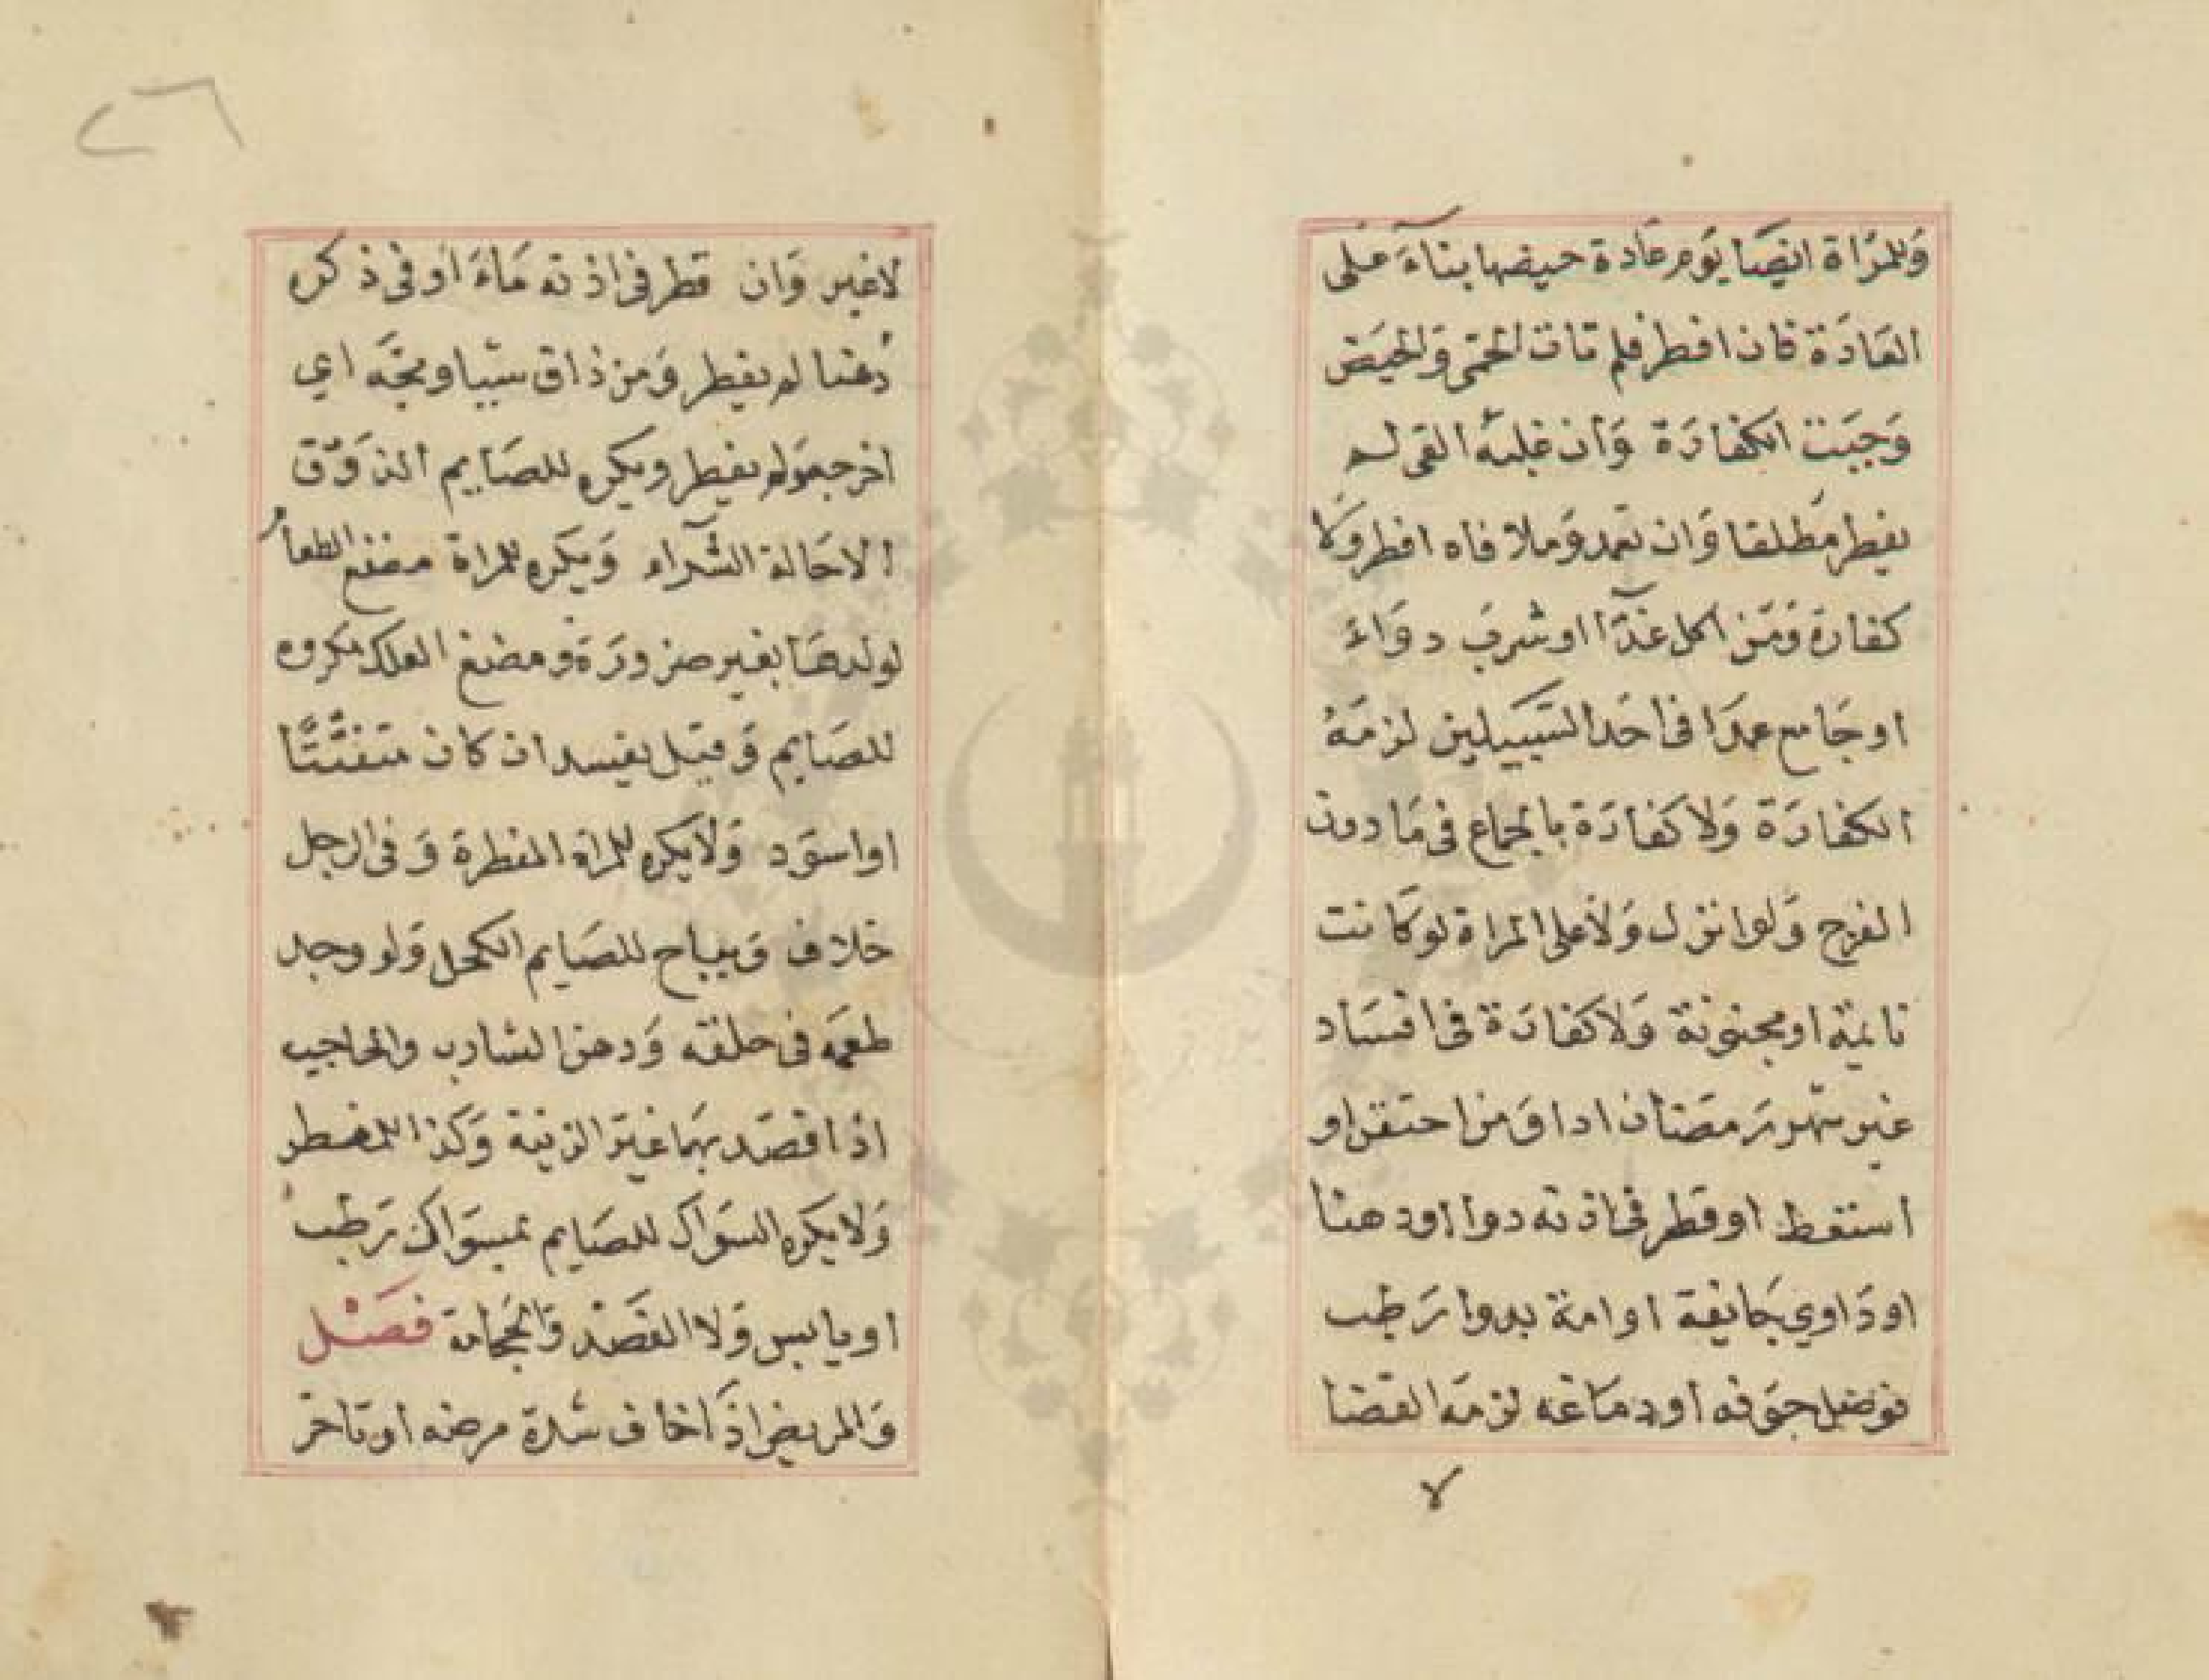 وَللمرْاة ايضَا يَوم عَادة حيضها بناءً على
العَادَة فان افطر فلم تات الحمّى وَالحيَض
وَجبَت الكفارَة وَان غلبهُ القى لم
يفطر مطلقا وَان تعمد وَملا فاه افطر وَلا
كفارة وَمَن اكل غذآا او شربَ دوَاءً
او جَامع عمدَا فى احَد السَّبيلين لزمَهُ
الكفارَة وَلا كفارَة بالجماع فى مَا دون
الفرج وَلو انزل وَلا على المراة لو كَانت
نايمة او مجنونة وَلا كفارَة فى افسَاد
غير شهر رَمضَان ادا وَ من احتقن او
استعط او قطر فى اذنه دوا او دهنا
او دَاوي جَايفة او امة بدوا رَطب
فوصل جوَفه او دمَاغه لزمَه القضا
لا
٢٦
لا غير وَان قطر فى اذنه مَاءً او فى ذكره
دُهنا لم يفطر وَمن ذاق شيا ومجَّه اي
اخرجه وَلم يفطر ويكره للصَايم الذوَق
الا حَالة الشّراء وَيكره للمراة مضغ الطعام
لولدهَا بغير ضرورَة ومضغ العلك مكروه
للصَايم وَقيل يفسد ان كان متفتِّتًا
او اسوَد وَلا يكره للمراة المفطرة وَفى الرجل
خلاف وَيباح للصَايم الكحل وَلو وجد
طعمَه فى حلقه وَدهن الشارب والحاجب
اذا قصَد بهَما غيَر الزينة وَكذا للمفطر
وَلا يكره السوَاك للصَايم بمسوَاك رَطب
او يابس وَلا الفصَد وَالحجامة فصَـْل
وَالمريض اذَا خاف شدة مرضه او تاخر